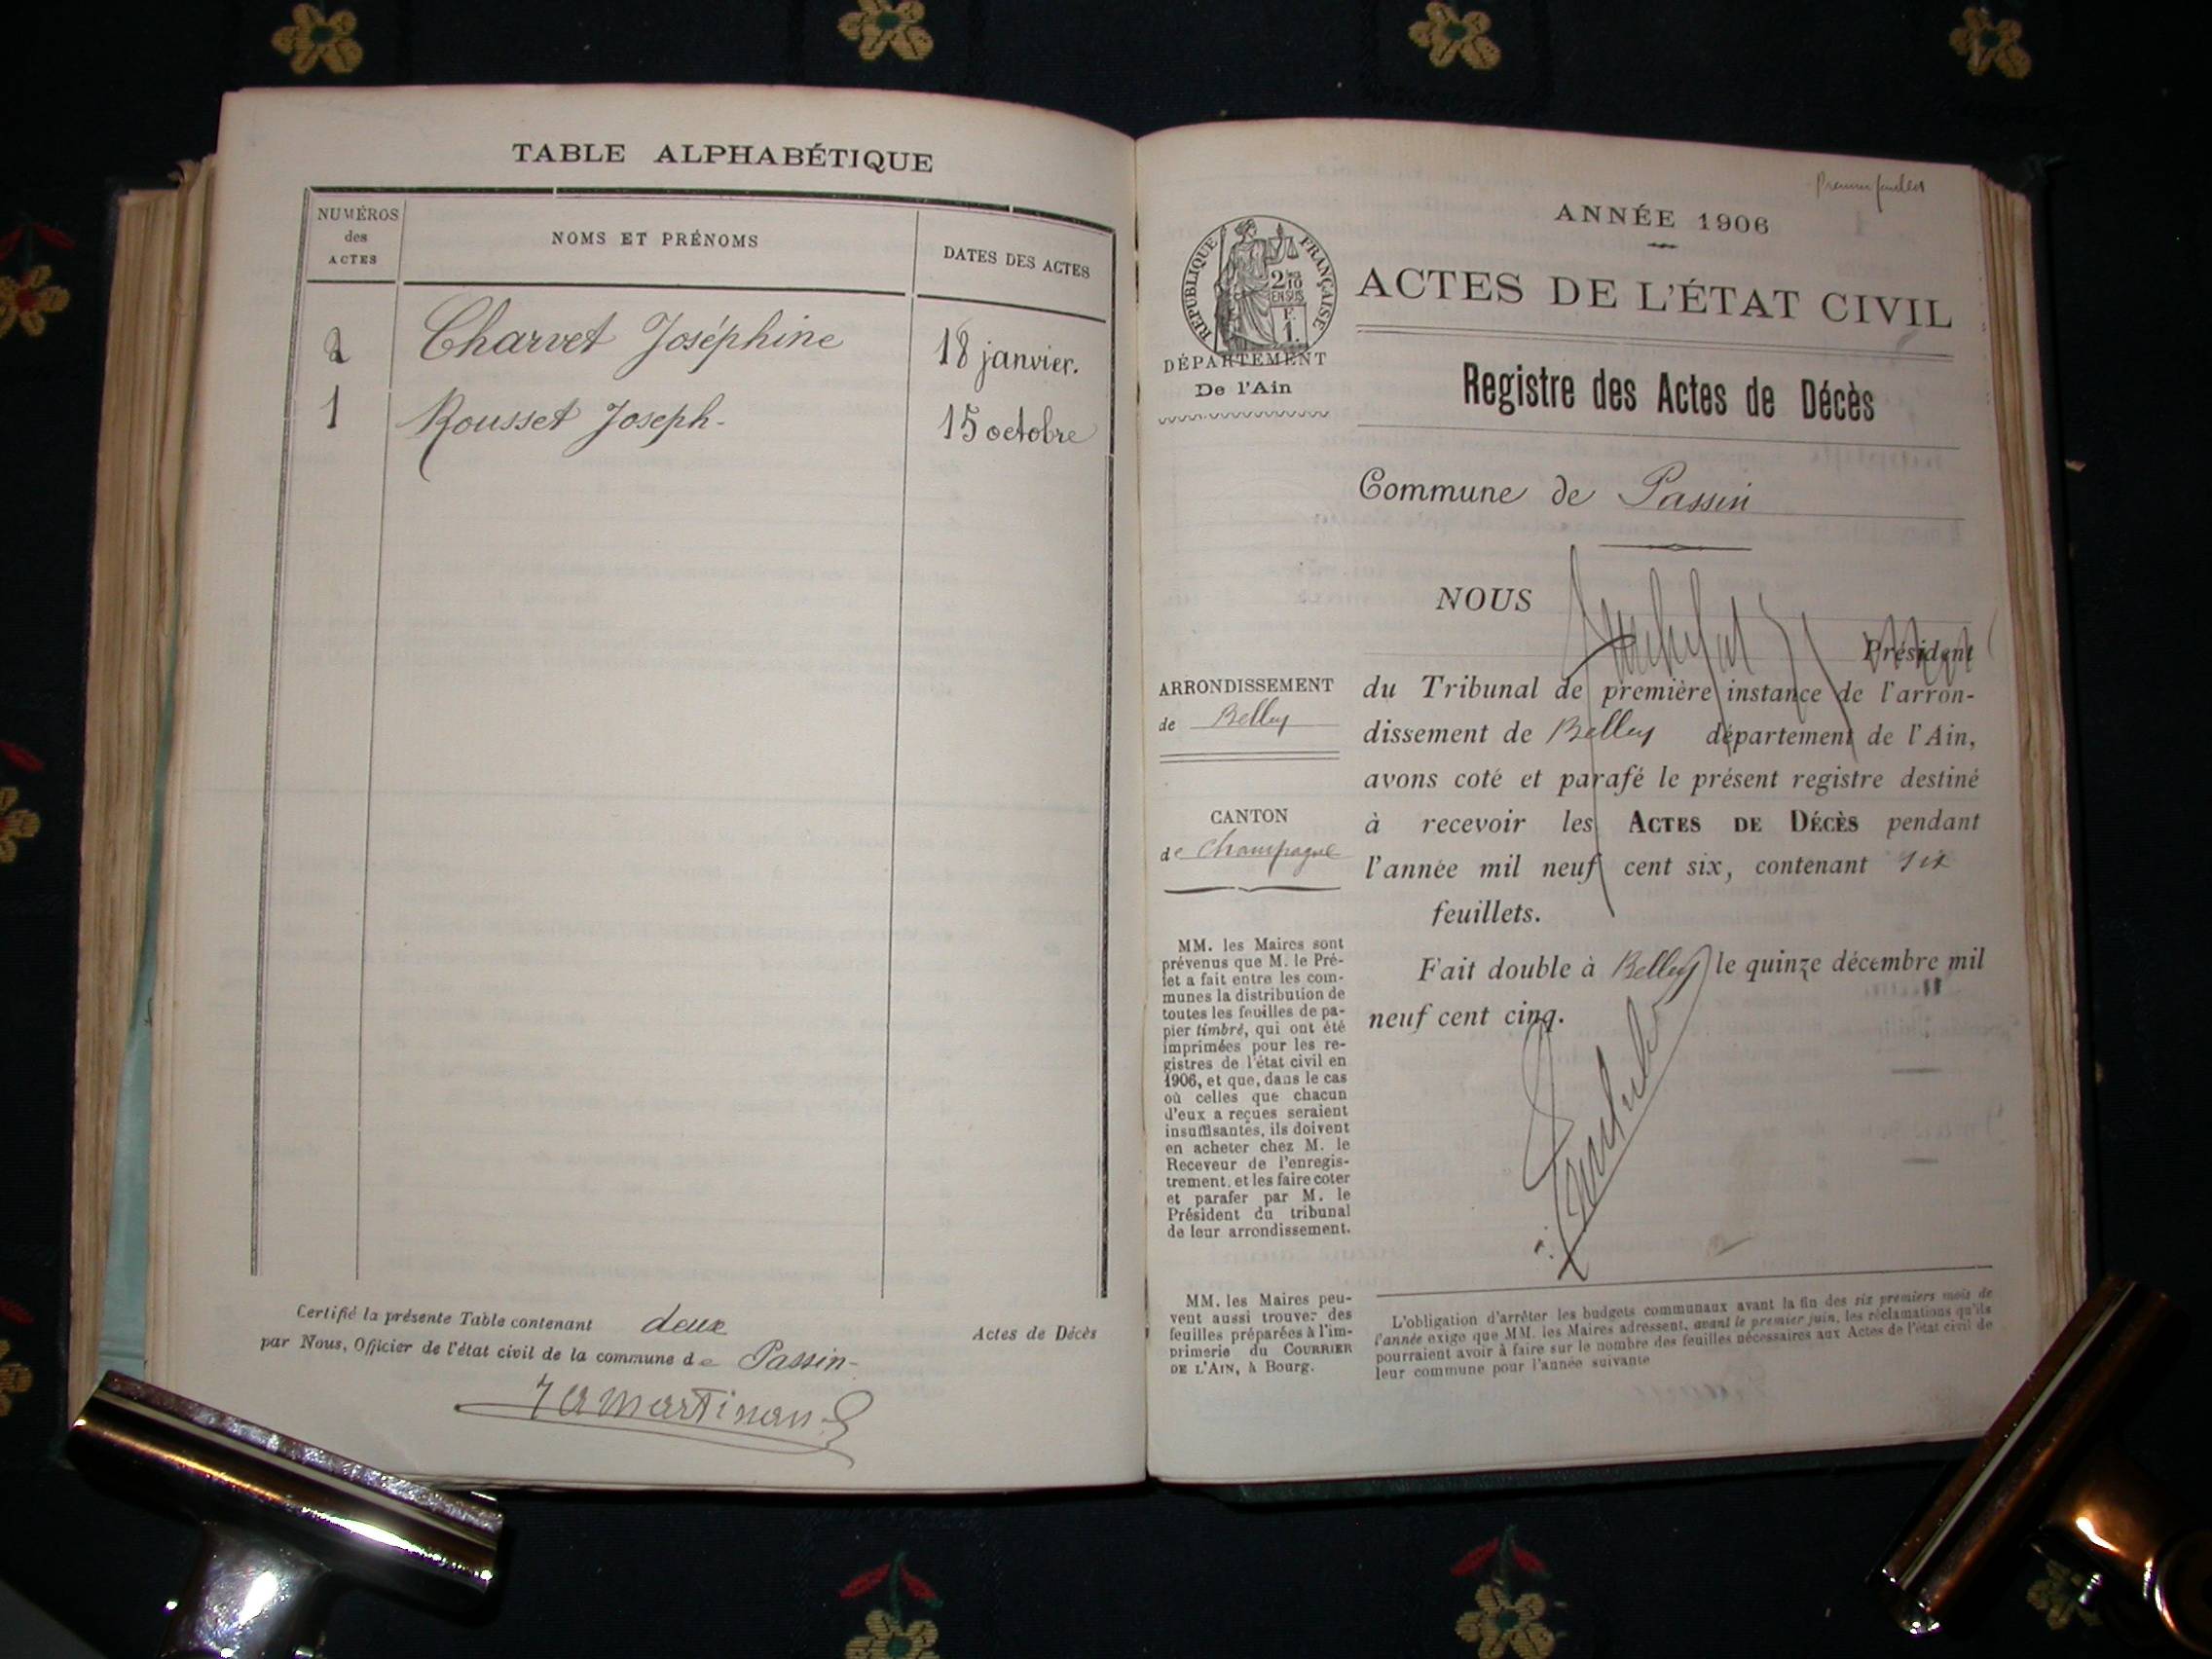 TABLE ALPHABÉTIQUE
NUMÉROS
des
ACTES
NOMS ET PRÉNOMS
DATES DES ACTES
2 Charvet Joséphine 18 janvier.
1 Rousset Joseph- 15 octobre
Certifié la présente Table contenant deux Actes de Décès
par Nous, Officier de l'état civil de la commune de Passin-
ANNÉE 1906
RÉPUBLIQUE FRANÇAISE
ACTES DE L'ÉTAT CIVIL
DÉPARTEMENT
De l'Ain
Registre des Actes de Décès
Commune de Passin
NOUS
Président
du Tribunal de première instance de l'arron-
dissement de Belley département de l'Ain,
avons coté et parafé le présent registre destiné
à recevoir les ACTES DE DÉCÈS pendant
l'année mil neuf cent six, contenant six
feuillets.
Fait double à Belley le quinze décembre mil
neuf cent cinq.
ARRONDISSEMENT
de Belley
CANTON
de Champagne
MM. les Maires sont
prévenus que M. le Pré-
fet a fait entre les com-
munes la distribution de
toutes les feuilles de pa-
pier timbré, qui ont été
imprimées pour les re-
gistres de l'état civil en
1906, et que, dans le cas
où celles que chacun
d'eux a reçues seraient
insuffisantes, ils doivent
en acheter chez M. le
Receveur de l'enregis-
trement, et les faire coter
et parafer par M. le
Président du tribunal
de leur arrondissement.
MM. les Maires peu-
vent aussi trouver des
feuilles préparées à l'im-
primerie du COURRIER
DE L'AIN, à Bourg.
L'obligation d'arrêter les budgets communaux avant la fin des six premiers mois de
l'année exige que MM. les Maires adressent, avant le premier juin, les réclamations qu'ils
pourraient avoir à faire sur le nombre des feuilles nécessaires aux Actes de l'état civil de
leur commune pour l'année suivante